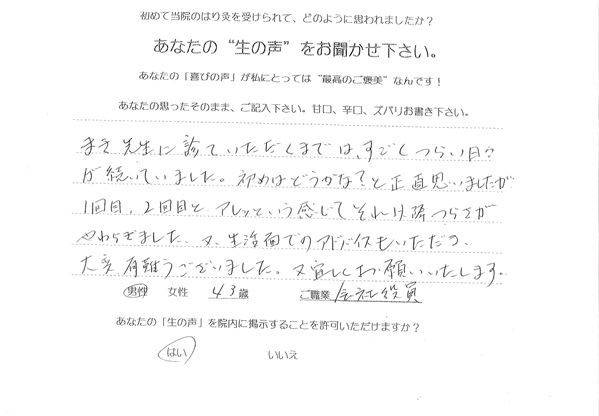 初めて当院のはり灸を受けられて、どのように思われましたか？
あなたの“生の声”をお聞かせ下さい。
あなたの「喜びの声」が私にとっては“最高のご褒美”なんです！
あなたの思ったそのまま、ご記入下さい。甘口、辛口、ズバリお書き下さい。
先生に診ていただくまでは、すごくつらい日々
が続いていました。初めはどうかな？と正直思いましたが
1回目、2回目とアレッという感じでそれ以降つらさが
やわらぎました。又、生活面でのアドバイスもいただき
大変有難うございました。又宜しくお願いいたします。
男性 女性 43歳 ご職業 会社役員
あなたの「生の声」を院内に掲示することを許可いただけますか？
はい いいえ